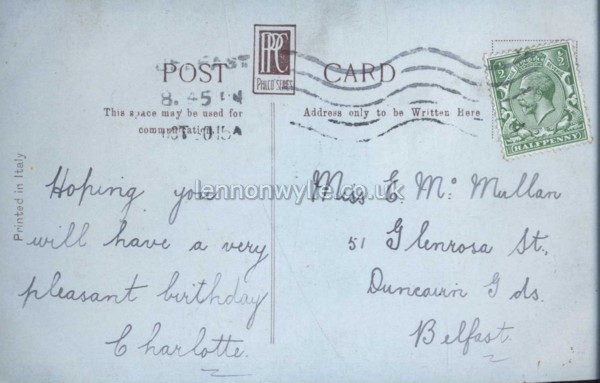 POST CARD
PPC
PHILCO SERIES
8. 45 PM
This space may be used for
Address only to be Written Here
HALFPENNY
Printed in Italy
lennonwylie.co.uk
Hoping you
will have a very
pleasant birthday
Charlotte.
Miss E Mc Mullan
51 Glenrosa St.
Duncairn Gds.
Belfast.